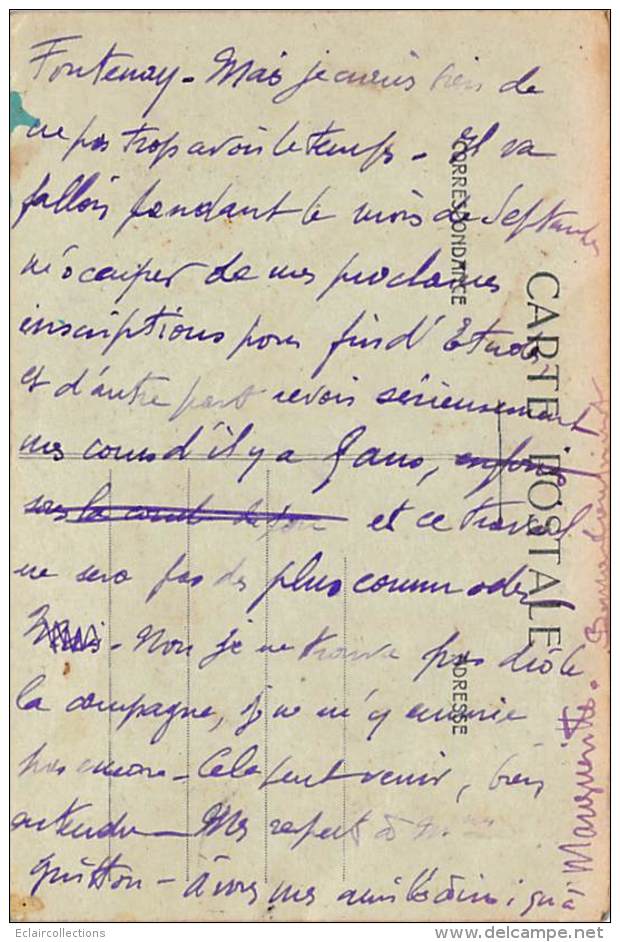 Fontenay - Mais je crains bien de
ne pas trop avoir le temps - Il va
falloir pendant le mois de Septembre
m'occuper de mes prochaines
inscriptions pour fin d'Etudes
et d'autre part revoir sérieusement
mes cours d'il y a 9 ans,
et ce travail
ne sera pas des plus commodes
- Non je ne trouve pas drôle
la campagne, je ne m'y ennuie
pas encore - Cela peut venir, bien
entendu - Mes respects à Mme
Guitton - à vous mes amitiés ainsi qu'à
Marguerite.
CARTE POSTALE
CORRESPONDANCE
ADRESSE
Eclaircollections
www.delcampe.net